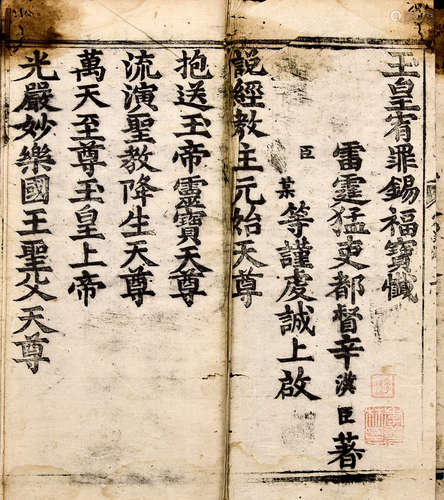 玉皇宥罪錫福寶懺
雷霆猛吏都督辛漢臣著
臣某等謹虔誠上啟
說經教主元始天尊
抱送玉帝靈寶天尊
流演聖教降生天尊
萬天至尊玉皇上帝
光嚴妙樂國王聖父天尊